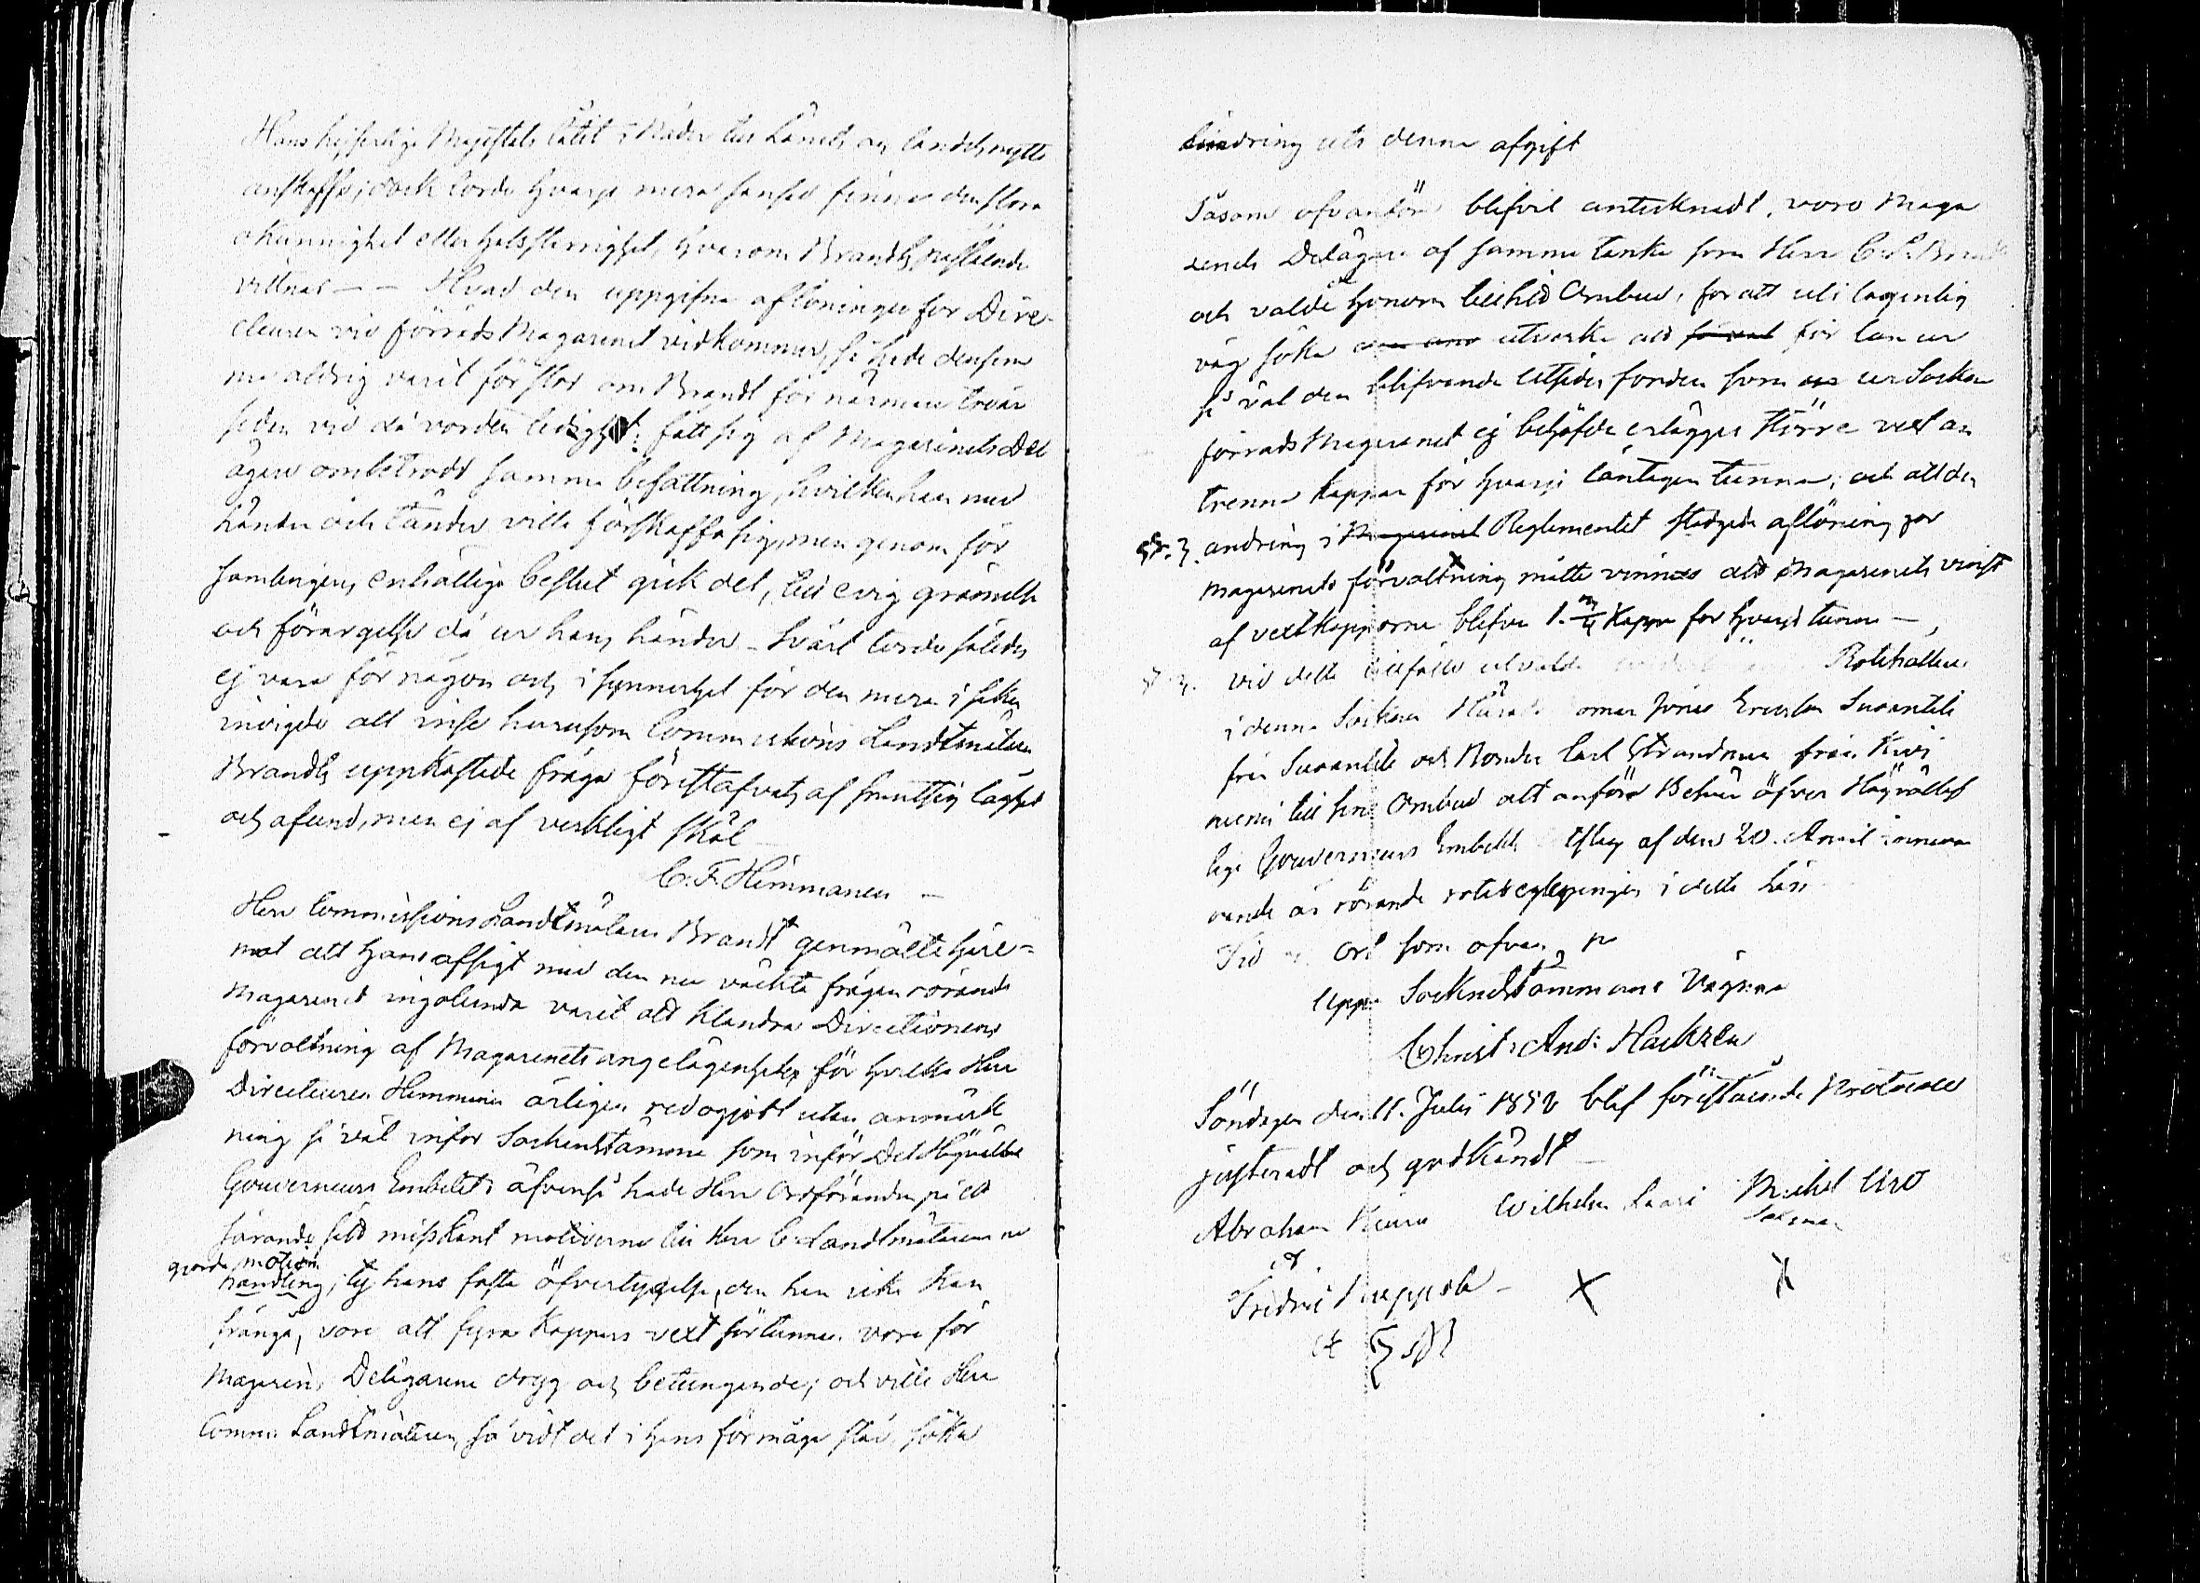 Hans Kejserliga Majestet låtit i Nåder till Länets och landets nytta
anskaffa; dock torde hvarje mera sansad finna den stora
okunnighet eller halsstarrighet, hvarom Brandts påstående
vittnar - - Hvad den uppgifna aflöningen for Dire-
cteuren vid förråds Magasinet vidkommer, så hade densam
ma aldrig varit för stor om Brandt för närmare tvär
seden vid då vorden ledighet fått sig af Magasinets Del
ägare ombetrodt samma befattning, hvilken han med
händer och tänder ville förskaffa sig, men genom för
samlingens enhälliga beslut gick det, till evig grämelse
och förargelse då ur hans händer - Svårt torde således
ej vara för någon och i synnerhet för den mera i saken
invigde att inse hurusom Commissions Landtmätaren
Brandts uppkastade fråga förestafvats af smutsig låghet
och afund, men ej af verkligt skäl -
C. F. Himmanen -
Herr Commissions Landtmätaren Brandt genmälte häre-
mot att hans afsigt med den nu väckta frågan rörande
Magasinet ingalunda varit att klandra Directionens
förvaltning af Magasinets angelägenheter för hvilka Herr
Directeuren Himmanen årligen redogjort utan anmärk
ning så väl inför Sockenstämma som inför Det Högvälbe
Gouverneurs Embetet; äfvenså hade Herr Ordföranden på ett
sårande sätt misskänt motiverna till Herr C. Landtmätarens nu
gjorda motion
handling; ty hans fasta öfvertygelse, den han icke kan
frångå, vore att fyra Kappars vext för tunnan vore för
Magasins Delägarena dryg och betungande; och ville Herr
Comms Landtmätaren, så vidt det i hans förmåga står, söka
lindring uti denna afgift
Såsom ofvanföre blifvit antecknadt, voro Maga
sinets Delägare af samma tanke som Herr C. L. Brandt
och valde honom till sitt Ombud, för att uti lagenlig
väg söka utverka att för lån ur
så väl den blifvande utsädes fonden som ur Socken
förråds Magasinet ej behöfde erläggas större vext än
trenne kappar för hvarje låntagen tunna; och att den
§ 2. ändring i Magasinet Reglementet stadgade aflöning for
Magasinets förvaltning måtte vinnas att Magasinets vinst
af vextkapparne blefve 1. 3/4 Kappa for hvarje tunna -,
§ 3. Vid detta tillfälle utvalde Rotehållare
i denna Socken
från Suvantila och Bonden Carl Strandman från Kivi
niemi till sine Ombud att anföra Besvär öfver Högvälbe
lige Gouverneurs Embetets Utslag af den 20. April innevar
ande år rörande rotebeläggningen i detta Län
Tid och Ort som ofvan
Uppå Sockenstämmans Vägnar
Christ: And: Hackzell
Söndagen den 11. Julii 1852 blef förestående Protocoll
justeradt och godkändt -
Abraham Wilhelm Laari Michel Uro
X X